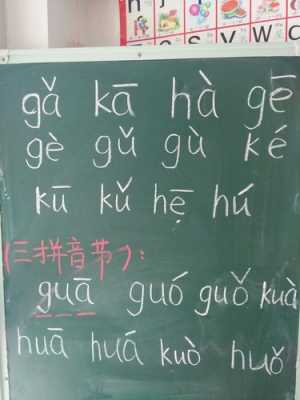 S V W C
gǎ kā hà gē
gè gǔ gù ké
kū kǔ hē hú
(三拼音节):
guā guó guǒ kuà
huā huá kuò huǒ